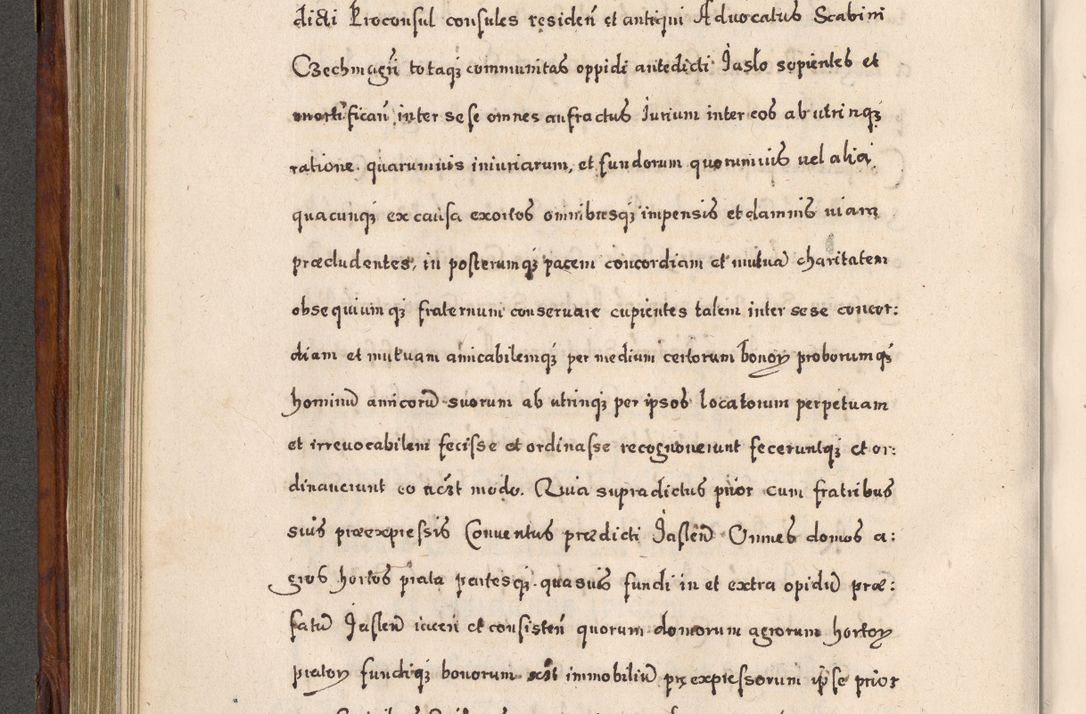 dicti Proconsul consules residen̄ et antiqui Advocatus Scabini
Czechmagrī totaqȝ communitas oppidi antedicti Jaslo sapientes et
mortifican̄ inter sese omnes anfractus Jurium inter eos ab utrinqȝ
ratione quarumuis iniuriarum, et fundorum quorumuis uel alia
quacunqȝ ex causa exortos omnibusqȝ impensis et damnis uiam
præcludentes, in posterumqȝ pacem concordiam et mutuā charitatem
obsequiumqȝ fraternum conseruare cupientes talem inter sese concor:
diam et mutuam amicabilemqȝ per medium certorum bonoꝝ proborumqȝ
hominū amicorū suorum ab utrinqȝ per ipsos locatorum perpetuam
et irreuocabilem fecisse et ordinasse recognouerunt feceruntqȝ et or:
dinauerunt eo modo. Quia supradictus prior cum fratribus
suis præexpressis Conuentus prædicti Jaslen̄ Omnes domos a:
gros hortos prata partesqȝ quasuis fundi in et extra opidū præ:
fatū Jaslen̄ iacen̄ et consisten̄ quorum domorum agrorum hortoꝝ
pratoꝝ fundiqȝ bonorum immobiliū pręexpressorum ipse prior